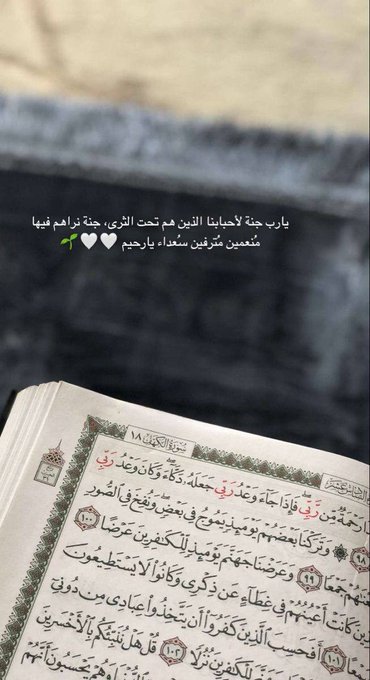 يارب جنة لأحبابنا الذين هم تحت الثرى، جنة نراهم فيها
مُنعمين مُترفين سُعداء يارحيم 🤍🤍🌱
سُورَةُ الكَهْفِ ١٨
رَحْمَةٌ مِّن رَّبِّي فَإِذَا جَآءَ وَعْدُ رَبِّي جَعَلَهُۥ دَكَّآءَ وَكَانَ وَعْدُ رَبِّي
٩٨ ۞ وَتَرَكْنَا بَعْضَهُمْ يَوْمَئِذٍ يَمُوجُ فِي بَعْضٍ وَنُفِخَ فِي ٱلصُّورِ
جَمْعًا ٩٩ وَعَرَضْنَا جَهَنَّمَ يَوْمَئِذٍ لِّلْكَٰفِرِينَ عَرْضًا ١٠٠
كَانَتْ أَعْيُنُهُمْ فِي غِطَآءٍ عَن ذِكْرِي وَكَانُوا۟ لَا يَسْتَطِيعُونَ
١٠١ أَفَحَسِبَ ٱلَّذِينَ كَفَرُوٓا۟ أَن يَتَّخِذُوا۟ عِبَادِي مِن دُونِيٓ
لِلْكَٰفِرِينَ نُزُلًا ١٠٢ قُلْ هَلْ نُنَبِّئُكُم بِٱلْأَخْسَرِينَ
وَهُمْ يَحْسَبُونَ أَنَّهُمْ